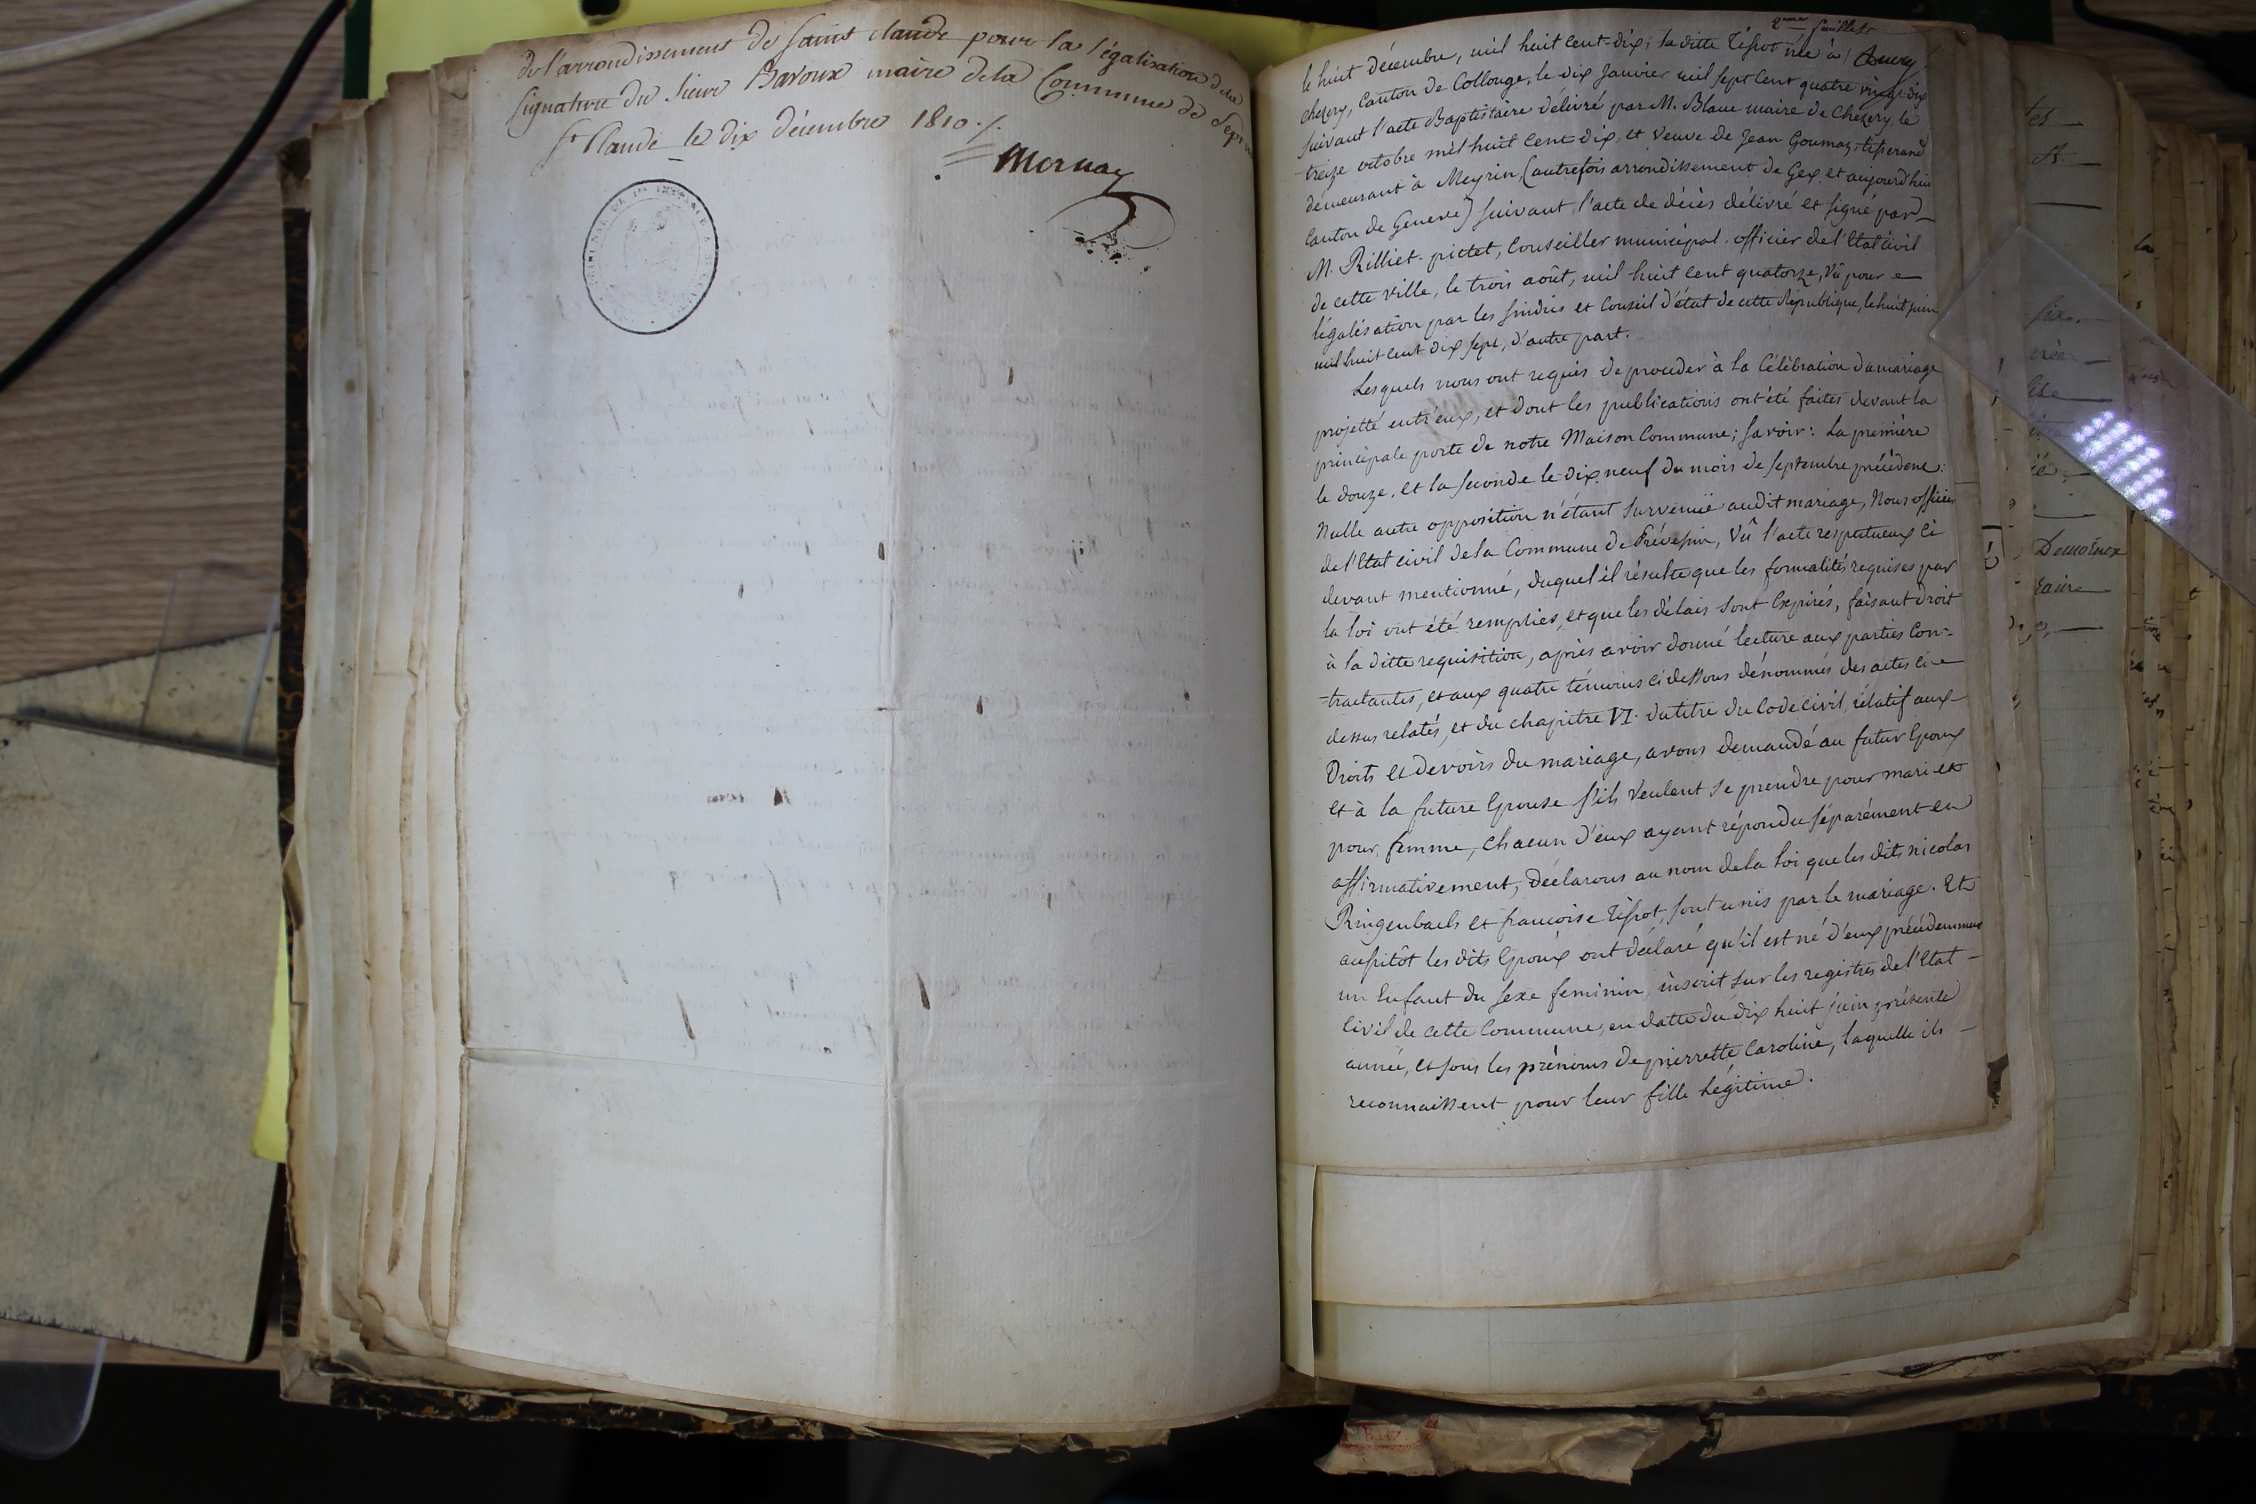 de l'arrondissement de Saint Claude pour la légalisation de la
signature du Sieur Baroux maire de la Commune de Sept
St Claude le dix décembre 1810 ./.
Mornay
2eme feuillet
le huit décembre, mil huit cent-dix; la ditte Tissot née à
chezery, Canton de Collonge, le dix Janvier mil sept cent quatre vingt dix
suivant l'acte Baptistaire délivré par M. Blanc maire de Chezery, le
treize octobre mil huit cent dix, et veuve de Jean Goumaz, tisserand
demeurant à Meyrin, (autrefois arrondissement de Gex, et aujourd'hui
canton de Geneve) suivant l'acte de décès délivré et signé par
M. Rilliet-pictet, Conseiller municipal, officier de l'Etat civil
de cette ville, le trois août, mil huit cent quatorze, Vû pour
légalisation par les Sindics et Conseil d'état de cette République, le huit juin
mil huit cent dix sept, d'autre part.
Lesquels nous ont requis de proceder à la Célébration du mariage
projetté entr'eux, et dont les publications ont été faites devant la
principale porte de notre Maison Commune; Savoir: La première
le douze, et la seconde le dix neuf du mois de septembre précédent:
Nulle autre opposition n'étant survenüe audit mariage, Nous officier
de l'Etat civil de la Commune de Prévessin, Vû l'acte respectueux ci
devant mentionné, duquel il résulte que les formalités requises par
la loi ont été remplies, et que les délais sont Expirés, faisant droit
à la ditte requisition, après avoir donné lecture aux parties Con-
-tractantes, et aux quatre témoins ci dessous dénommés des actes ci
dessus relatés, et du chapitre VI. du titre du Code civil, rélatif aux
Droits et devoirs du mariage, avons demandé au futur Epoux
et à la future Epouse s'ils veulent se prendre pour mari et
pour femme, chacun d'eux ayant répondu séparément en
affirmativement, déclarons au nom de la loi que les dits nicolas
Ringenbach et francoise Tissot, sont unis par le mariage. Et
aussitôt les dits Epoux ont déclaré qu'il est né d'eux précédemment
un Enfant du sexe feminin, inscrit sur les registres de l'Etat-
Civil de cette Commune, en datte du dix huit juin présente
année, et sous les prénoms de pierrette Caroline, laquelle ils
reconnaissent pour leur fille Légitime.
Demoinex
Maire